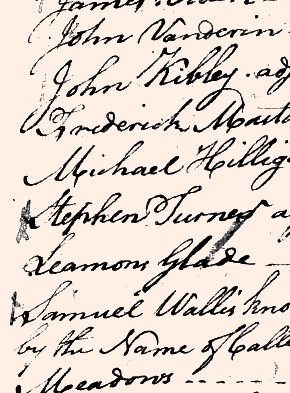 John Vanderin
John Kibley . adj
Frederick
Michael Hillig
Stephen Turner a
Leamons Glade
Samuel Wallis kno
by the Name of Calle
Meadows - - - - - -